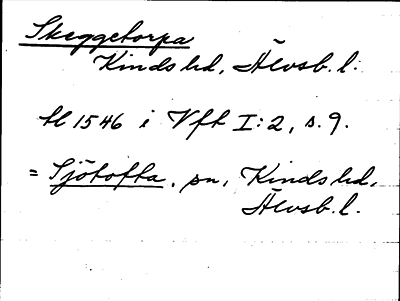 Skeggetorpa
Kinds hd, Älvsb. l.
tl 1546 i Vft I:2, s. 9.
= Sjötofta, sn, Kinds hd,
Älvsb. l.